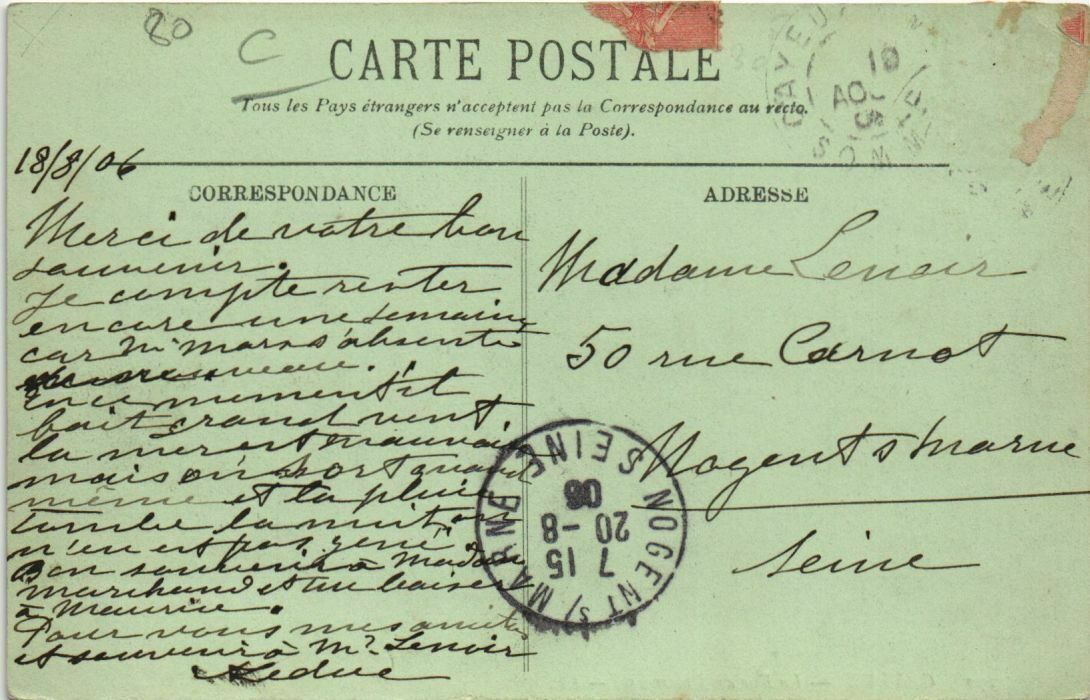 80
C
CARTE POSTALE
Tous les Pays étrangers n'acceptent pas la Correspondance au recto.
(Se renseigner à la Poste).
18/8/06
CORRESPONDANCE
Merci de votre bon
souvenir.
Je compte rester
encore une semaine
car Mr Mars s'absente
En ce moment il
fait grand vent
la mer est mauvaise
mais on sort quand
même et la pluie
tombe la nuit, on
n'en est pas gêné.
Bon souvenir à Madame
Marchand et un baiser
à Maurice.
Pour vous mes amitiés
et souvenir à Mr Lenoir
Leduc
ADRESSE
Madame Lenoir
50 rue Carnot
Nogent s Marne
Seine
CAYEUX
19
AOU
SOMME
NOGENT S/ MARNE
SEINE
7 15
20 - 8
06